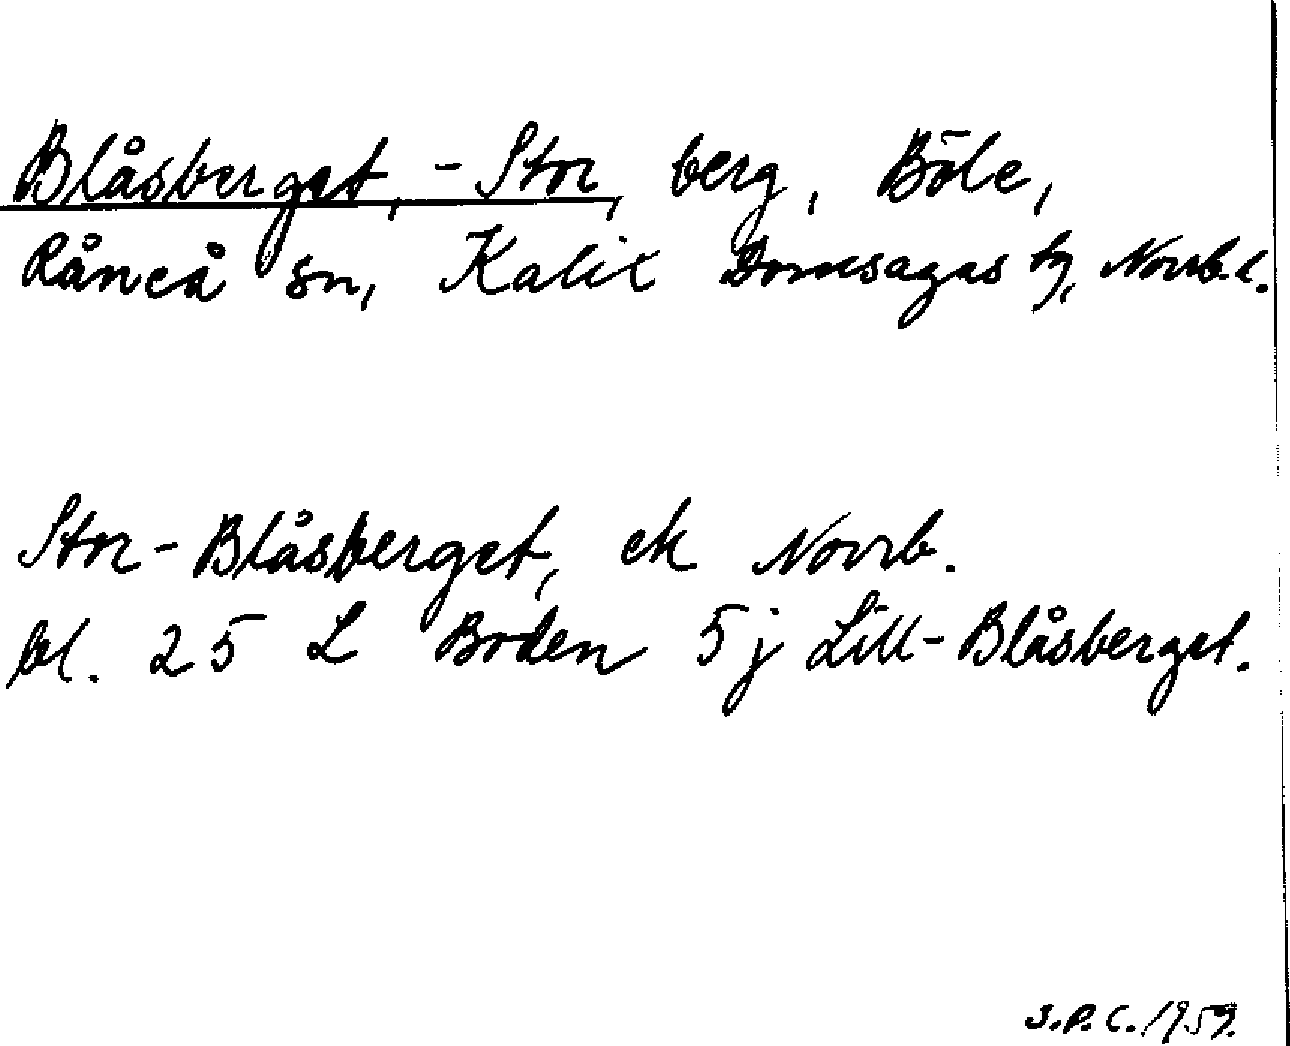 Blåsberget, -Stor, berg, Böle,
Råneå sn, Kalix Domsagas tg, Norrb.l.
Stor-Blåsberget, ek Norrb.
bl. 25 L Boden 5j Lill-Blåsberget.
S.P.C. 1959.